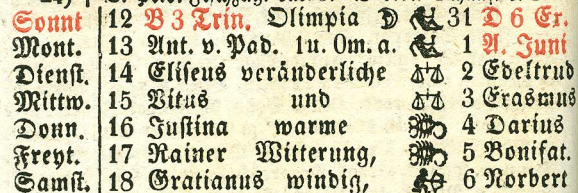 Sonnt 12 B 3 Trin. Olimpia 31 D 6 Ex.
Mont. 13 Ant. v. Pad. 1u. 0m. a. 1 A. Juni
Dienst. 14 Eliseus veränderliche 2 Edeltrud
Mittw. 15 Vitus und 3 Erasmus
Donn. 16 Justina warme 4 Darius
Freyt. 17 Rainer Witterung, 5 Bonifat.
Samst. 18 Gratianus windig, 6 Norbert